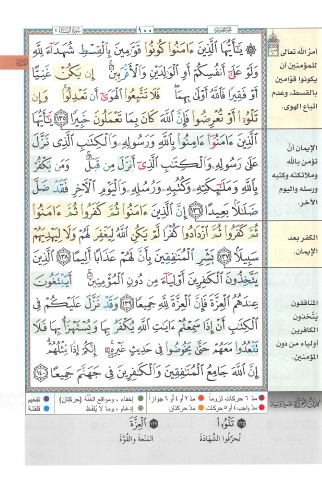 ١٠٠
۞ يَـٰٓأَيُّهَا ٱلَّذِينَ ءَامَنُوا۟ كُونُوا۟ قَوَّٰمِينَ بِٱلْقِسْطِ شُهَدَآءَ لِلَّهِ
وَلَوْ عَلَىٰٓ أَنفُسِكُمْ أَوِ ٱلْوَٰلِدَيْنِ وَٱلْأَقْرَبِينَ ۚ إِن يَكُنْ غَنِيًّا
أَوْ فَقِيرًا فَٱللَّهُ أَوْلَىٰ بِهِمَا ۖ فَلَا تَتَّبِعُوا۟ ٱلْهَوَىٰٓ أَن تَعْدِلُوا۟ ۚ وَإِن
تَلْوُۥٓا۟ أَوْ تُعْرِضُوا۟ فَإِنَّ ٱللَّهَ كَانَ بِمَا تَعْمَلُونَ خَبِيرًا ١٣٥ يَـٰٓأَيُّهَا
ٱلَّذِينَ ءَامَنُوٓا۟ ءَامِنُوا۟ بِٱللَّهِ وَرَسُولِهِۦ وَٱلْكِتَـٰبِ ٱلَّذِى نَزَّلَ
عَلَىٰ رَسُولِهِۦ وَٱلْكِتَـٰبِ ٱلَّذِىٓ أَنزَلَ مِن قَبْلُ ۚ وَمَن يَكْفُرْ
بِٱللَّهِ وَمَلَـٰٓئِكَتِهِۦ وَكُتُبِهِۦ وَرُسُلِهِۦ وَٱلْيَوْمِ ٱلْـَٔاخِرِ فَقَدْ ضَلَّ
ضَلَـٰلًۢا بَعِيدًا ١٣٦ إِنَّ ٱلَّذِينَ ءَامَنُوا۟ ثُمَّ كَفَرُوا۟ ثُمَّ ءَامَنُوا۟
ثُمَّ كَفَرُوا۟ ثُمَّ ٱزْدَادُوا۟ كُفْرًا لَّمْ يَكُنِ ٱللَّهُ لِيَغْفِرَ لَهُمْ وَلَا لِيَهْدِيَهُمْ
سَبِيلًۢا ١٣٧ بَشِّرِ ٱلْمُنَـٰفِقِينَ بِأَنَّ لَهُمْ عَذَابًا أَلِيمًا ١٣٨ ٱلَّذِينَ
يَتَّخِذُونَ ٱلْكَـٰفِرِينَ أَوْلِيَآءَ مِن دُونِ ٱلْمُؤْمِنِينَ ۚ أَيَبْتَغُونَ
عِندَهُمُ ٱلْعِزَّةَ فَإِنَّ ٱلْعِزَّةَ لِلَّهِ جَمِيعًا ١٣٩ وَقَدْ نَزَّلَ عَلَيْكُمْ فِى
ٱلْكِتَـٰبِ أَنْ إِذَا سَمِعْتُمْ ءَايَـٰتِ ٱللَّهِ يُكْفَرُ بِهَا وَيُسْتَهْزَأُ بِهَا فَلَا
تَقْعُدُوا۟ مَعَهُمْ حَتَّىٰ يَخُوضُوا۟ فِى حَدِيثٍ غَيْرِهِۦٓ ۚ إِنَّكُمْ إِذًا مِّثْلُهُمْ ۗ
إِنَّ ٱللَّهَ جَامِعُ ٱلْمُنَـٰفِقِينَ وَٱلْكَـٰفِرِينَ فِى جَهَنَّمَ جَمِيعًا ١٤٠
أمرُ الله تعالى
للمؤمنين أن
يكونوا قوّامين
بالقسط، وعدم
اتباع الهوى.
الإيمان أنْ
تؤمن بالله
وملائكته وكتبه
ورسله واليوم
الآخر.
الكفر بعد
الإيمان.
المنافقون
يتّخذون
الكافرين
أولياء من دون
المؤمنين.
مدّ ٦ حركات لزوماً
مدّ ٢ أو ٤ أو ٦ جوازاً
إخفاء، ومواقع الغُنَّة (حركتان)
تفخيم
مدّ واجب ٤ أو ٥ حركات
مدّ حركتان
إدغام، وما لا يُلفَظ
قلقلة
تَلْوُۥٓا۟
تُحرِّفُوا الشَّهَادَةَ
ٱلْعِزَّةَ
المَنَعَةَ وَالقُوَّةَ